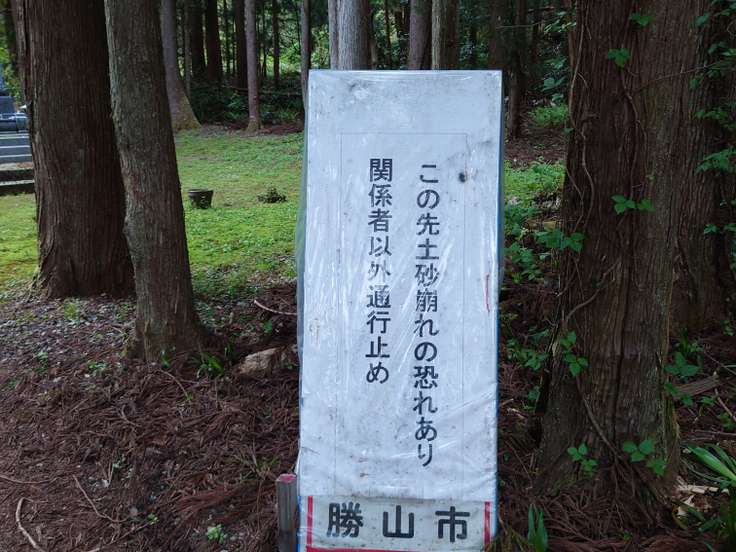 この先土砂崩れの恐れあり
関係者以外通行止め
勝山市